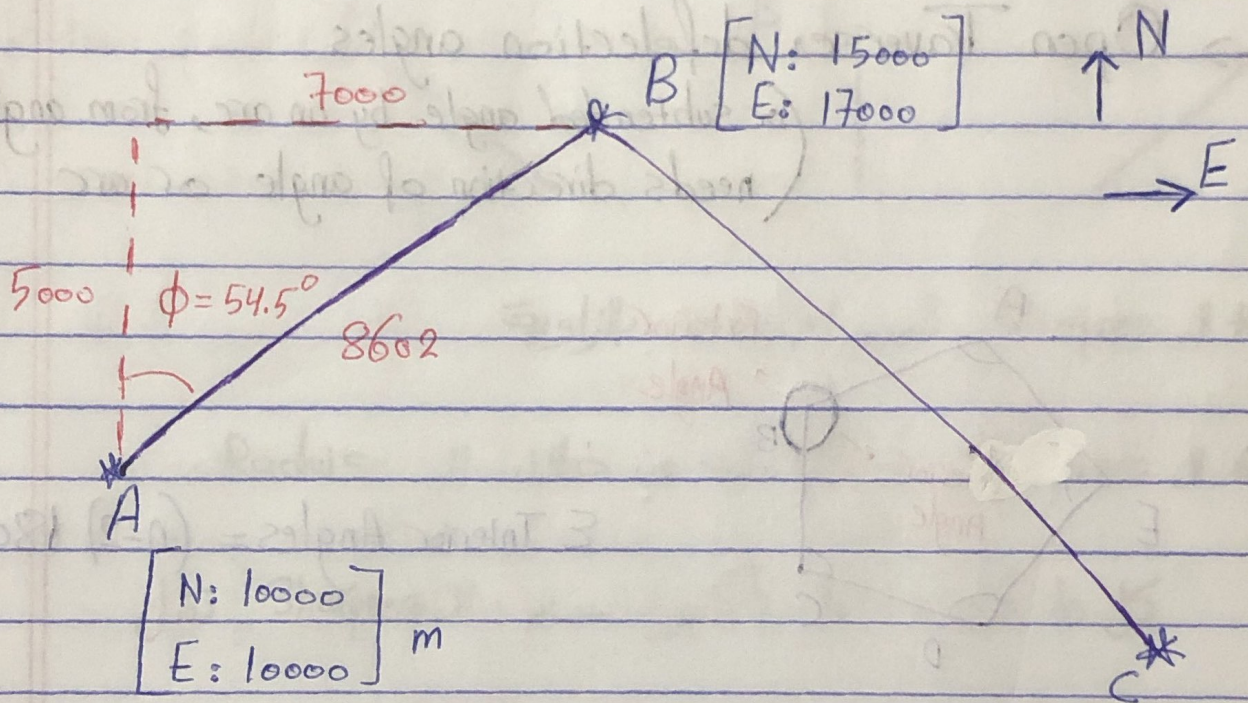 7000
B
N: 15000
E: 17000
N
E
5000
ϕ = 54.5°
8602
A
N: 10000
E: 10000
m
C